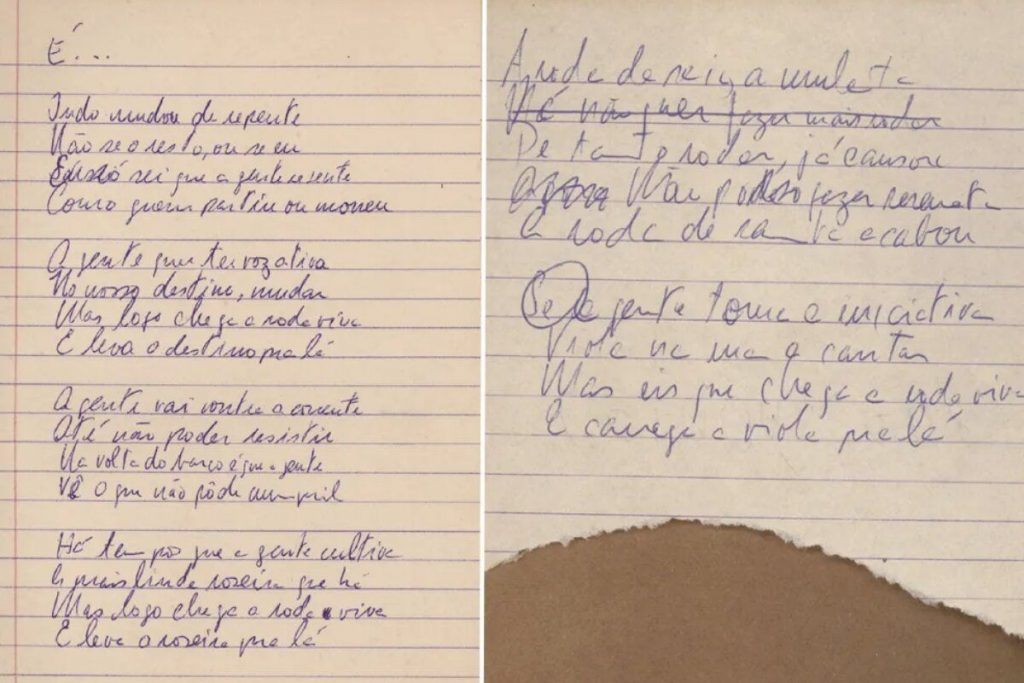 É...
Tudo mudou de repente
Não se o resto, ou se eu
Eu só sei que a gente se sente
Como quem partiu ou morreu
A gente quer ter voz ativa
No nosso destino, mudar
Mas logo chega a roda viva
E leva o destino pra lá
A gente vai contra a corrente
Até não poder resistir
Na volta do barco é que a gente
Vê o que não pôde cumprir
Há tempos que a gente cultiva
A mais linda roseira que há
Mas logo chega a roda viva
E leva a roseira pra lá
A roda da saia a mulata
Já não quer fazer mais rodar
De tanto rodar, já cansou
Não posso fazer serenata
A roda de samba acabou
A gente toma a iniciativa
Viola na mão a cantar
Mas eis que chega a roda viva
E carrega a viola pra lá